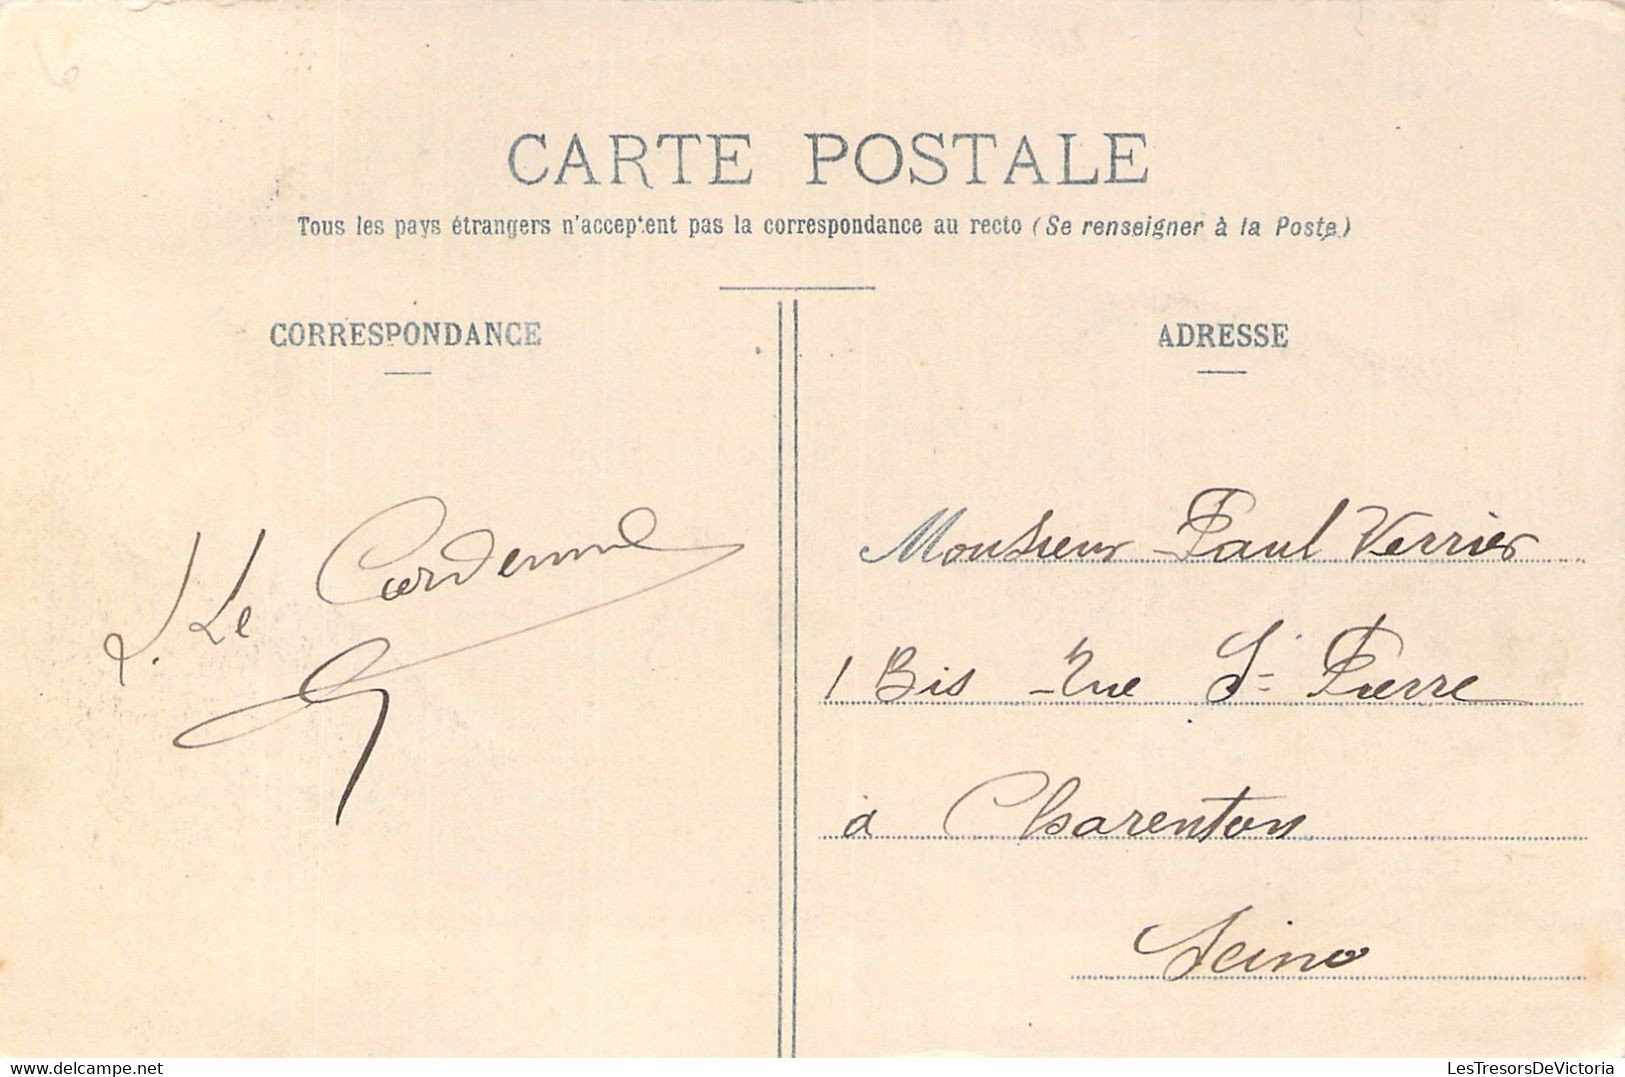 CARTE POSTALE
Tous les pays étrangers n'acceptent pas la correspondance au recto (Se renseigner à la Poste.)
CORRESPONDANCE
ADRESSE
J. Le Cardennel
Monsieur Paul Verrier
1 Bis Rue St Pierre
à Charenton
Seine
LesTresorsDeVictoria
delcampe.net